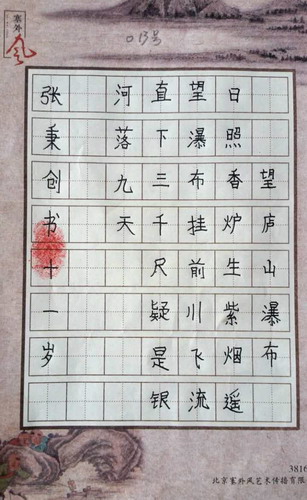 塞外风
013号
望庐山瀑布
日照香炉生紫烟遥
望瀑布挂前川飞流
直下三千尺疑是银
河落九天
张秉创书十一岁
3816
北京塞外风艺术传播有限